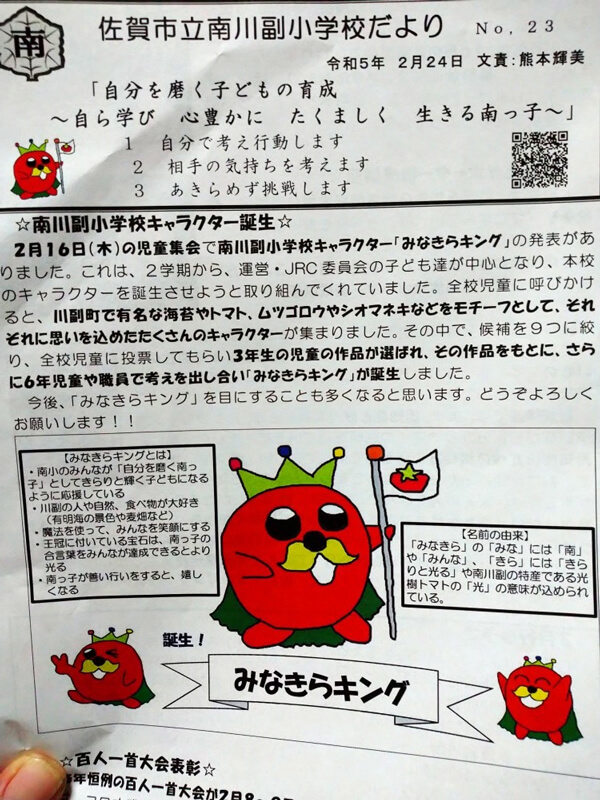 南
佐賀市立南川副小学校だより No, 23
令和5年 2月24日 文責:熊本輝美
「自分を磨く子どもの育成
～自ら学び 心豊かに たくましく 生きる南っ子～」
1 自分で考え行動します
2 相手の気持ちを考えます
3 あきらめず挑戦します
☆南川副小学校キャラクター誕生☆
2月16日(木)の児童集会で南川副小学校キャラクター「みなきらキング」の発表があ
りました。これは、2学期から、運営・JRC委員会の子ども達が中心となり、本校
のキャラクターを誕生させようと取り組んでくれていました。全校児童に呼びかけ
ると、川副町で有名な海苔やトマト、ムツゴロウやシオマネキなどをモチーフとして、それ
ぞれに思いを込めたたくさんのキャラクターが集まりました。その中で、候補を9つに絞
り、全校児童に投票してもらい3年生の児童の作品が選ばれ、その作品をもとに、さら
に6年児童や職員で考えを出し合い「みなきらキング」が誕生しました。
今後、「みなきらキング」を目にすることも多くなると思います。どうぞよろしく
お願いします!!
【みなきらキングとは】
・南小のみんなが「自分を磨く南っ
子」としてきらりと輝く子どもになる
ように応援している
・川副の人や自然、食べ物が大好き
(有明海の景色や麦畑など)
・魔法を使って、みんなを笑顔にする
・王冠に付いている宝石は、南っ子の
合言葉をみんなが達成できるとより
光る
・南っ子が善い行いをすると、嬉し
くなる
【名前の由来】
「みなきら」の「みな」には「南」
や「みんな」、「きら」には「きら
りと光る」や南川副の特産である光
樹トマトの「光」の意味が込められ
ている。
誕生!
みなきらキング
☆百人一首大会表彰☆
年恒例の百人一首大会が2月8